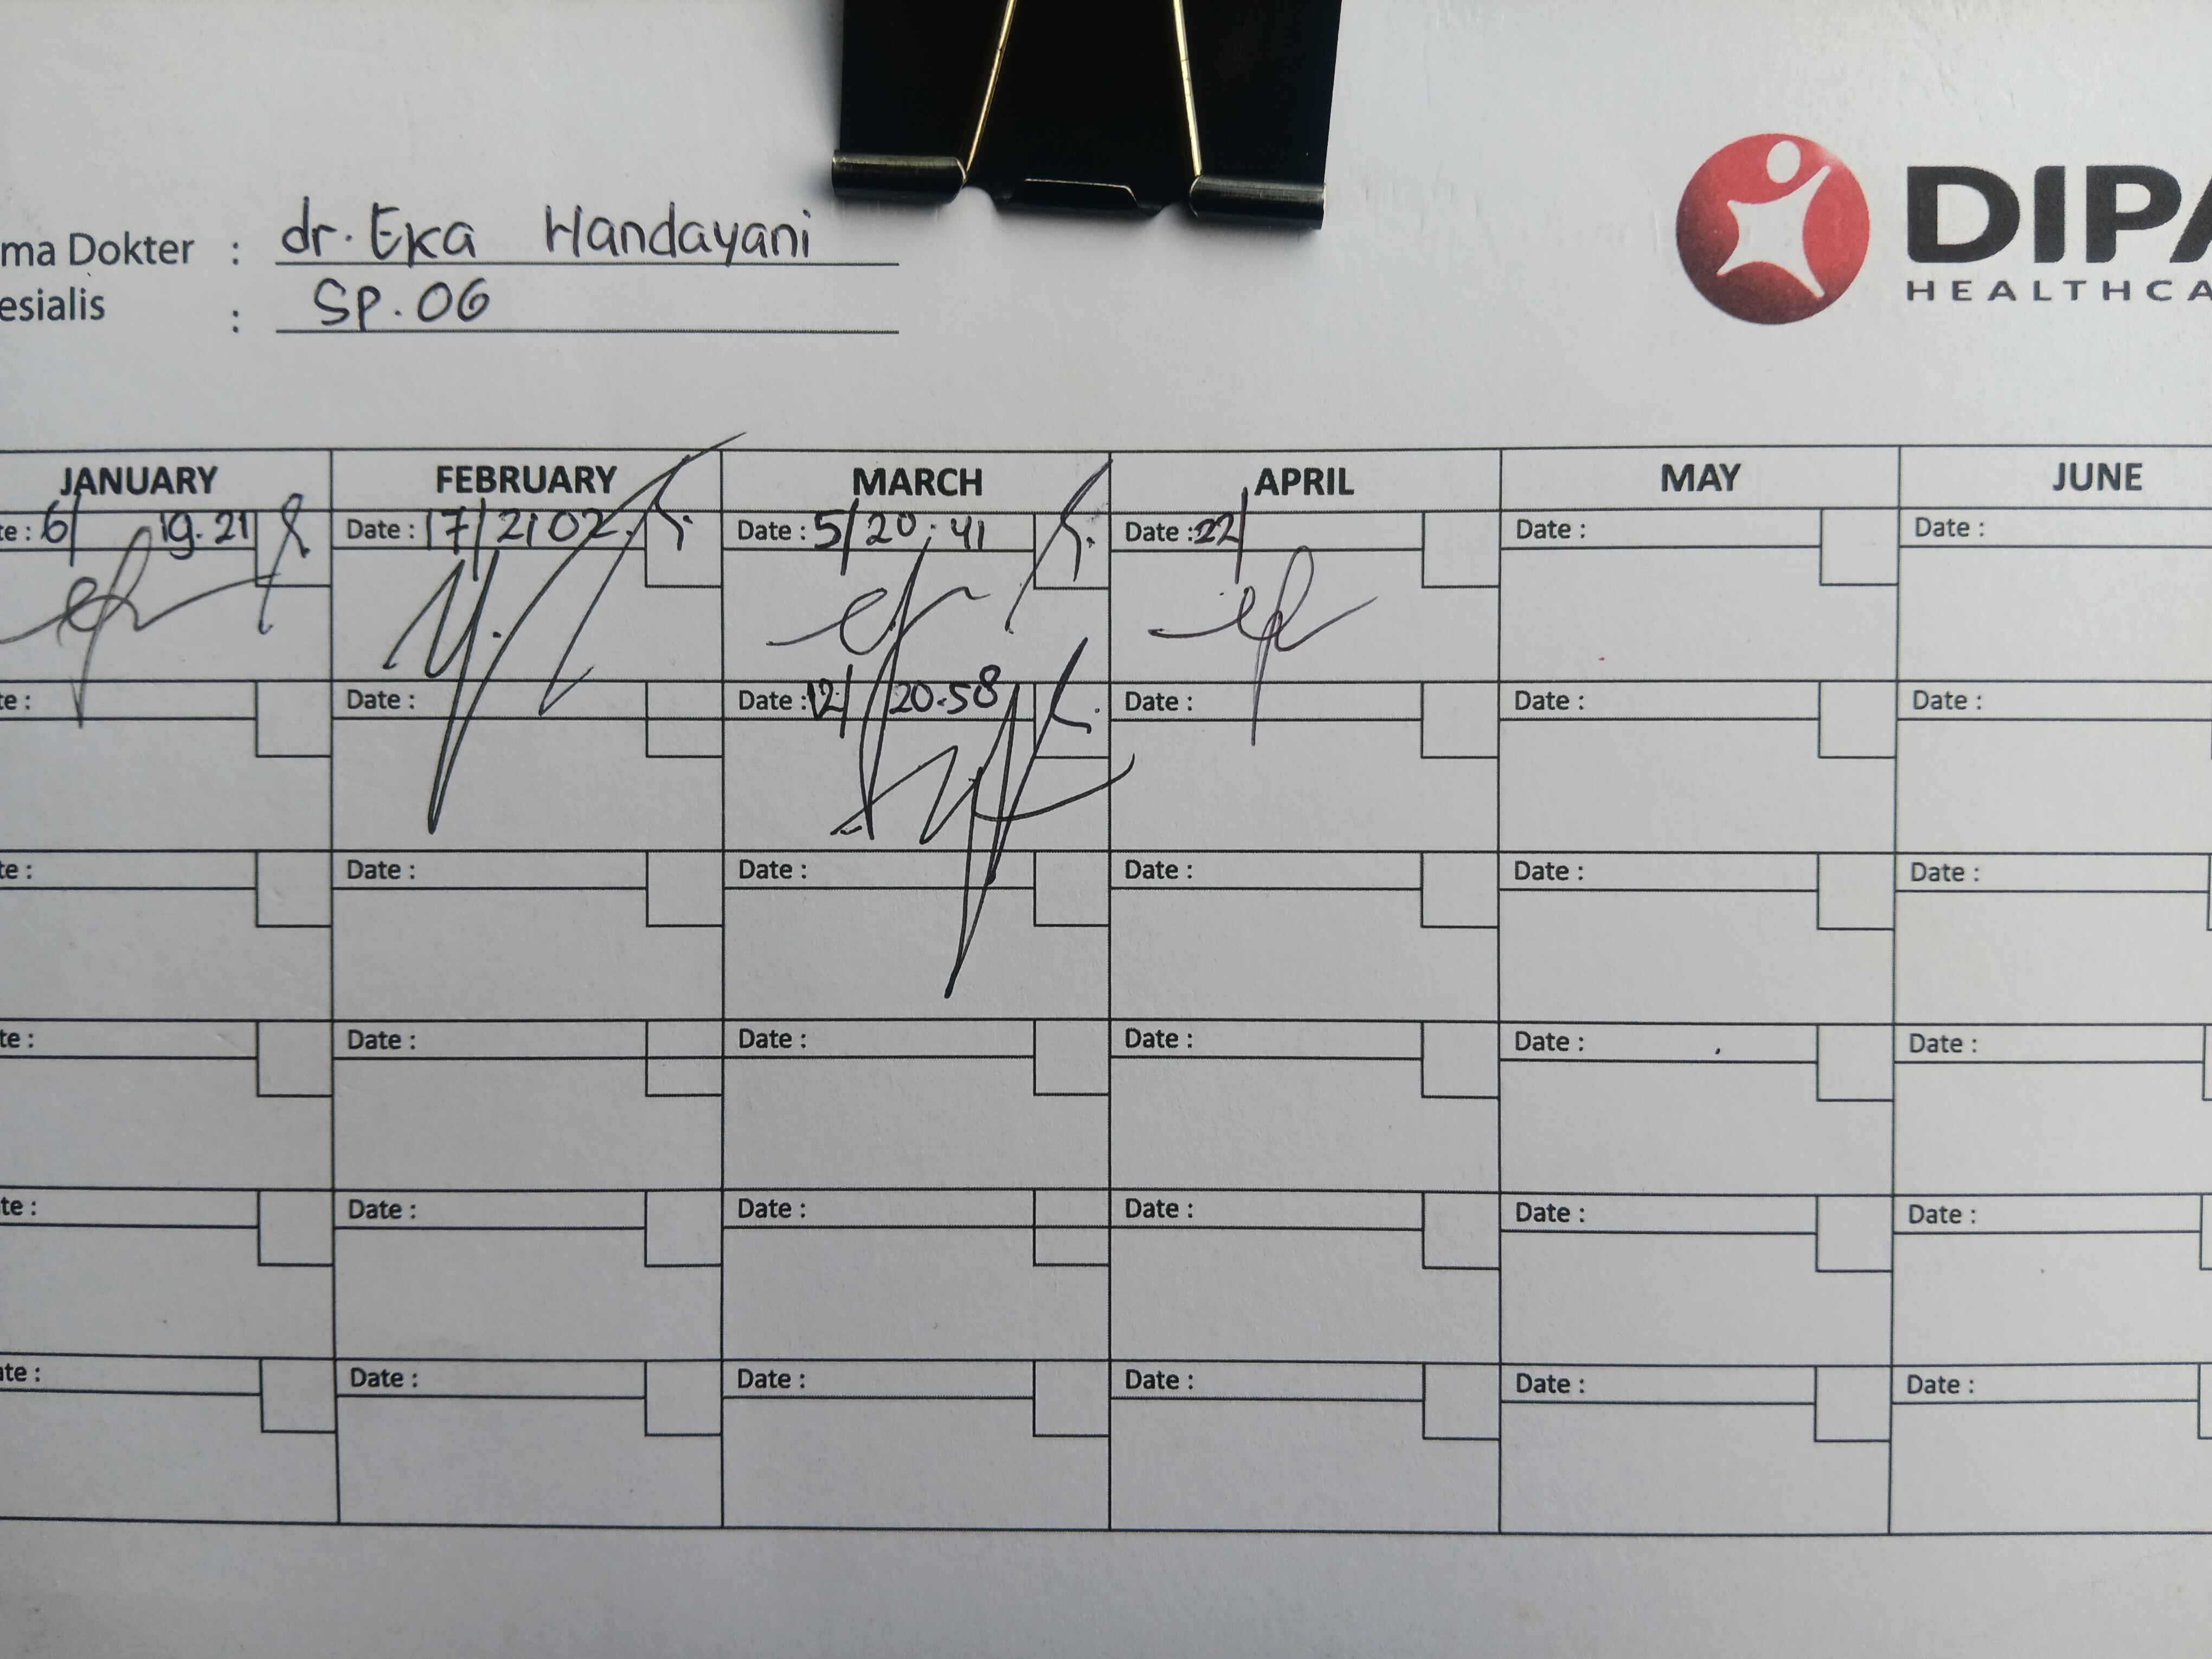 ma Dokter : dr. Eka Handayani
esialis : Sp. OG
DIPA
HEALTHCA
JANUARY FEBRUARY MARCH APRIL MAY JUNE
te : 6/ 19.21 Date : 17/ 21 02 Date : 5/ 20.41 Date : 22/ Date : Date :
te : Date : Date : 12/ 20.58 Date : Date : Date :
te : Date : Date : Date : Date : Date :
te : Date : Date : Date : Date : Date :
te : Date : Date : Date : Date : Date :
ate : Date : Date : Date : Date : Date :